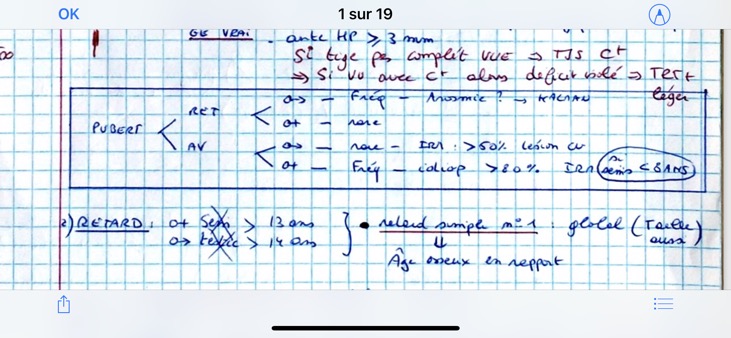 OK
1 sur 19
GE VRAI . ante HP ⩾ 3 mm
Si tige pas complèt VUE ⇒ TJS C+
⇒ Si VU avec C+ alors deficit isolé ⇒ Test léger
PUBERT
RET
♂ — Fréq — Anosmie ? → KALMAN
♀ — rare
AV
♂ — rare — IRM : > 50% lesion
♀ — Fréq — idiop > 80% IRM si seins < 8 ANS
2) RETARD : ♀ Sein > 13 ans
♂ testic > 14 ans
• retard simple n°1 : global (Taille aussi)
⇓
Âge osseux en rapport